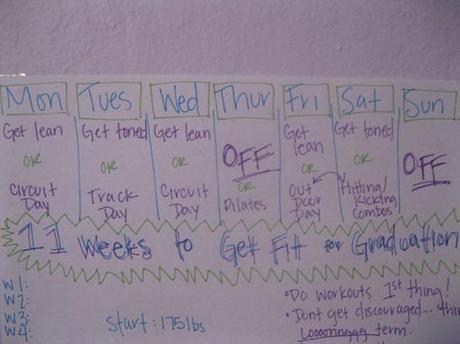 Mon Tues Wed Thur Fri Sat Sun
Get lean
OR
Circuit
Day
Get toned
OR
Track
Day
Get lean
OR
Circuit
Day
OFF
OR
Pilates
Get
lean
OR
Out
Door
Day
Get toned
OR
Hitting/
Kicking
Combos
OFF
11 Weeks to Get Fit for Graduation
W1:
W2:
W3:
W4:
Start: 175lbs
• Do workouts 1st thing!
• Dont get discouraged... thi
Looonnggg term.